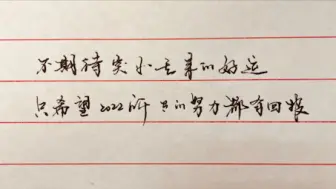 不期待突如其来的好运
只希望2022所有的努力都有回报